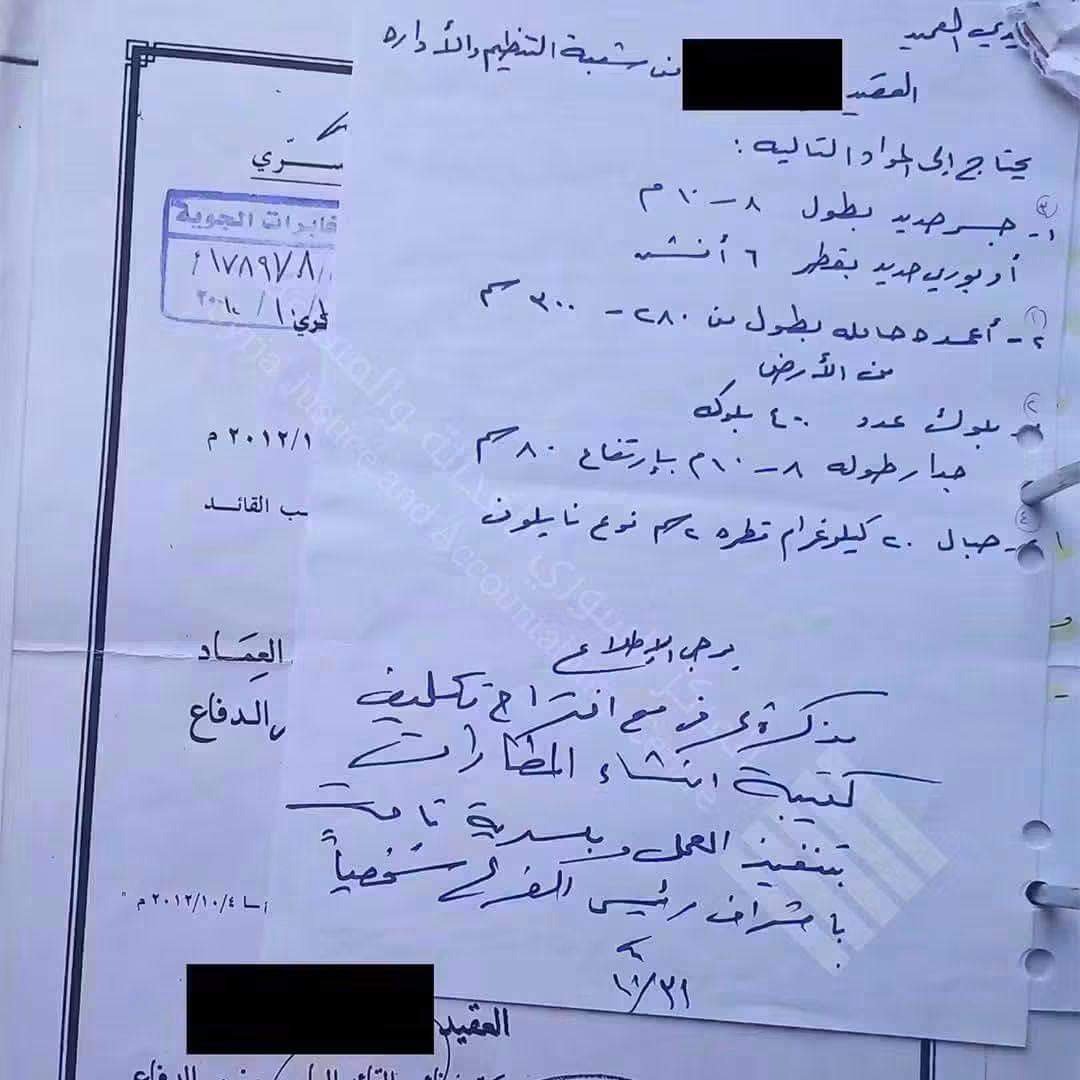 سيدي العميد
العقيد من شعبة التنظيم والأداره
يحتاج إلى المواد التاليه :
(٣) ١- جسر حديد بطول ٨ – ١٠ م
أو بوري حديد بقطر ٦ أنش
(١) ٢- أعمده حامله بطول من ٢٨٠ – ٣٠٠ سم
من الأرض
(٢) بلوك عدد ٤٠٠ بلوكه
جدار طوله ٨ – ١٠ م بإرتفاع ٨٠ سم
(٤) - حبال ٢٠ كيلوغرام قطره ٢ سم نوع نايلون
يرجى الإطلاع
مذكرة عرض مع اقتراح تكليف
كتيبة انشاء المطارات
بتنفيذ العمل وبسرية تامة
باشراف رئيس الفرع شخصياً
٣١/
سرّي
خابرات الجوية
١٧٨٩٧٨
٢٠١٢/١ م
ب القائد
العِمَاد
الدفاع
٢٠١٢/١٠/٤ م "
العقيد
الدفاع